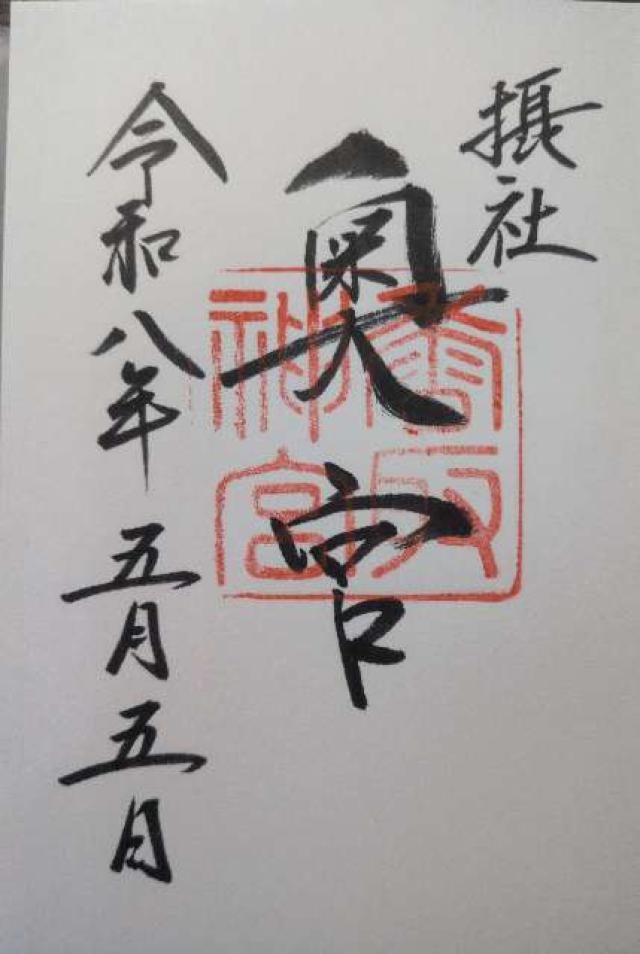 摂社
奥宮
香取神宮
令和八年五月五日